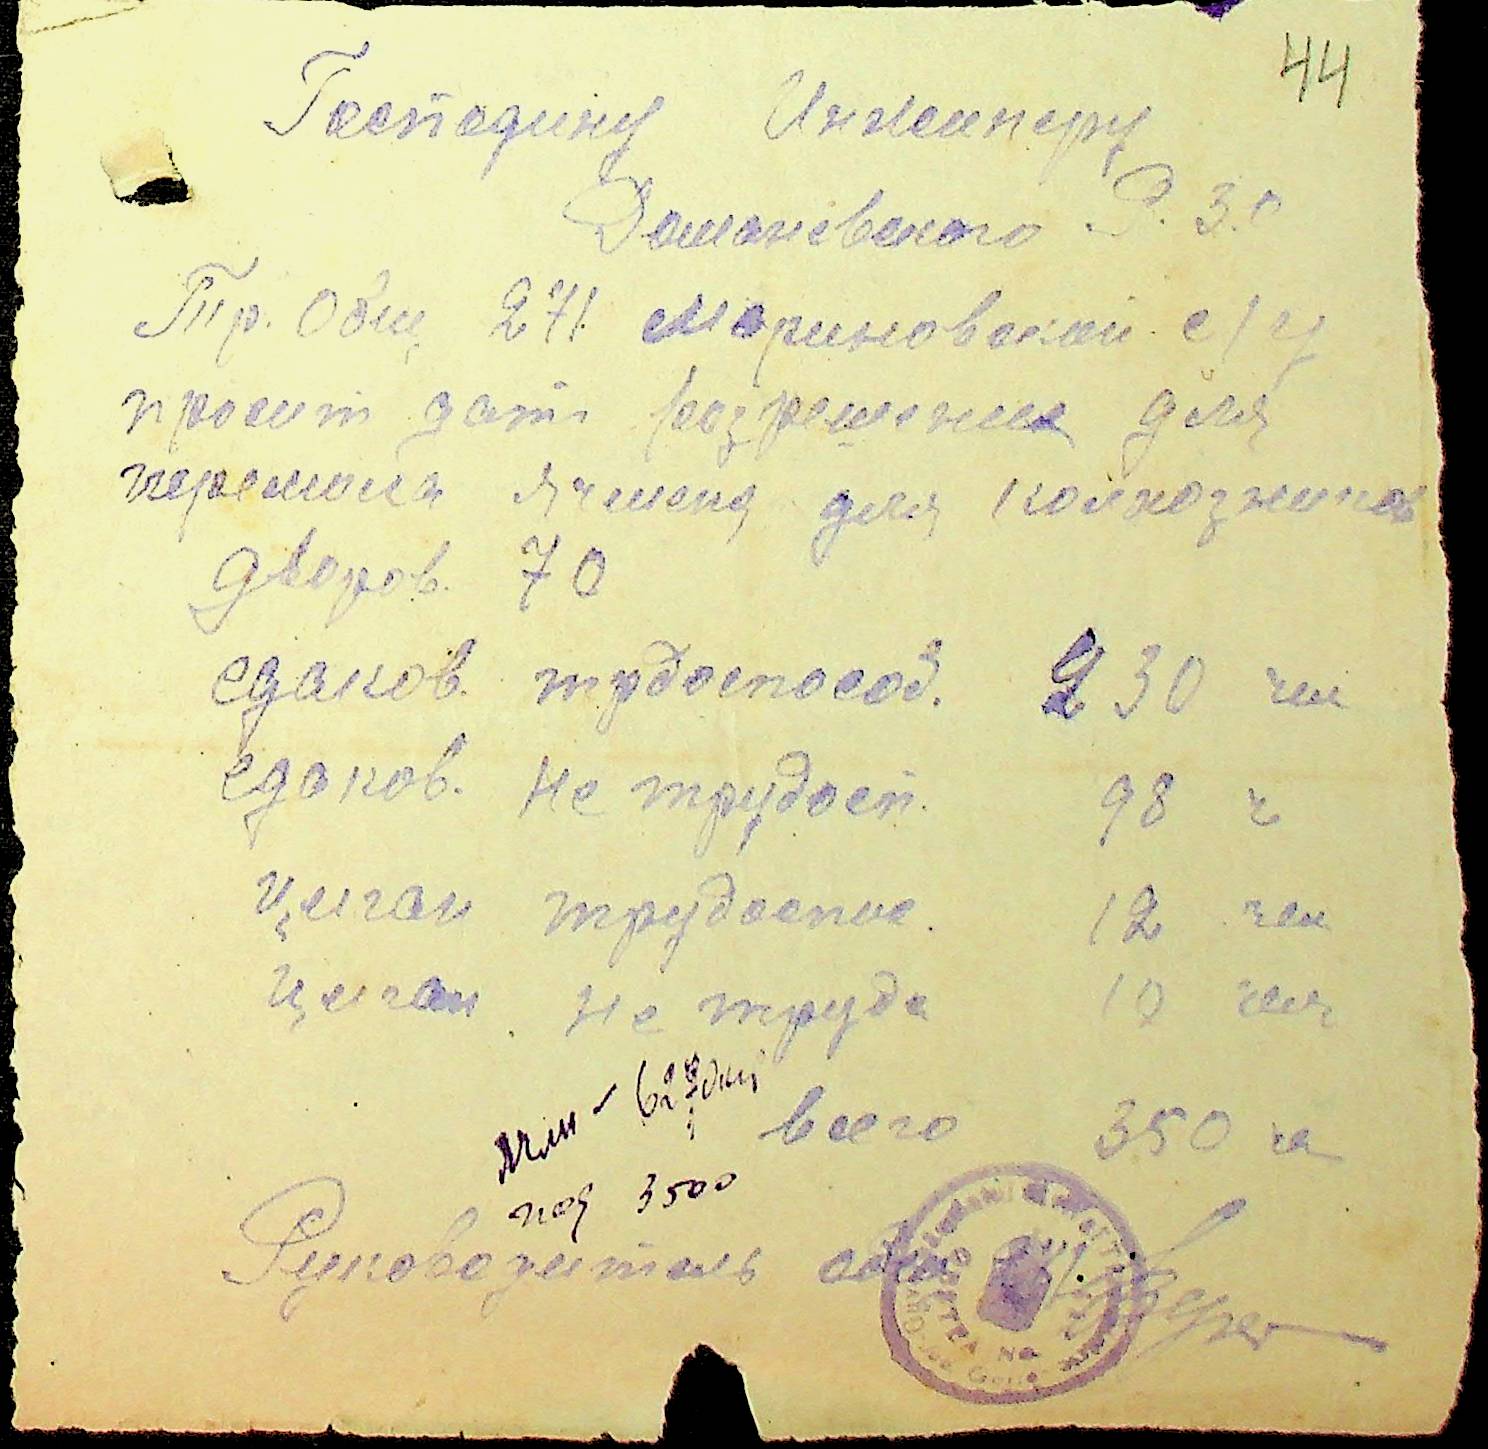 44
Господину Инженеру
Домановского Р. З.О
Тр. Общ 271 Мариновской с/у
просит дать розрешение для
перемола Ячменя для колхозников
дворов. 70
едаков. трудоспособ. 230 чел
едаков. не трудосп. 98 ч
Цыган трудоспос. 12 чел
Цыган не трудо 10 чел
Ячм -
всего 350 че
под 3500
Руководитель общ 271